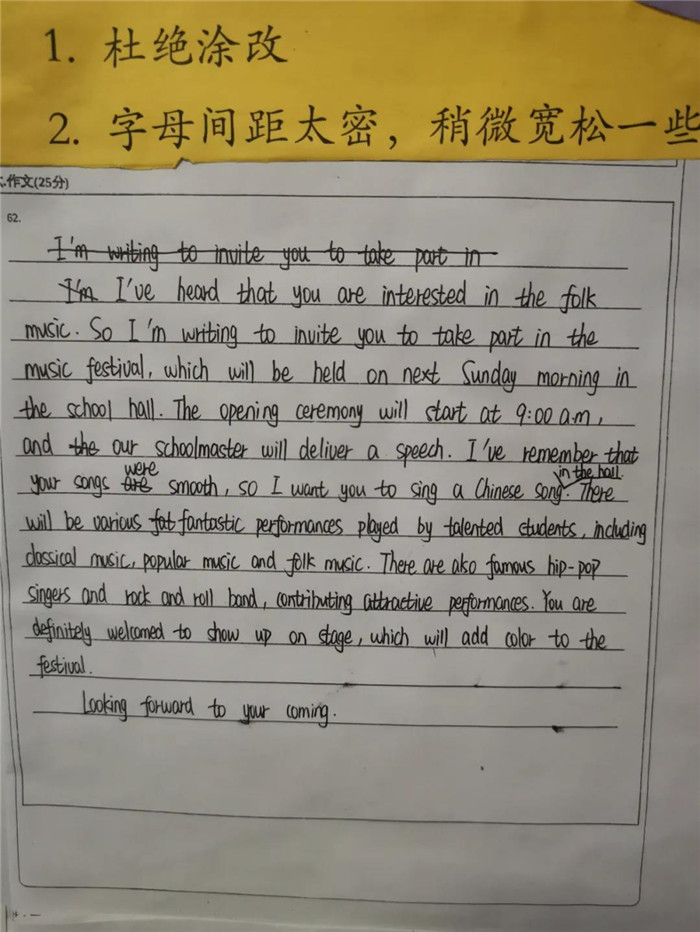 1. 杜绝涂改
2. 字母间距太密，稍微宽松一些
作文(25分)
62.
I'm writing to invite you to take part in
I'm I've heard that you are interested in the folk
music. So I'm writing to invite you to take part in the
music festival, which will be held on next Sunday morning in
the school hall. The opening ceremony will start at 9:00 a.m,
and the our schoolmaster will deliver a speech. I've remember that
were
in the hall.
your songs are smooth, so I want you to sing a Chinese song. There
will be various fat fantastic performances played by talented students, including
classical music, popular music and folk music. There are also famous hip-pop
singers and rock and roll band, contributing attractive performances. You are
definitely welcomed to show up on stage, which will add color to the
festival.
Looking forward to your coming.